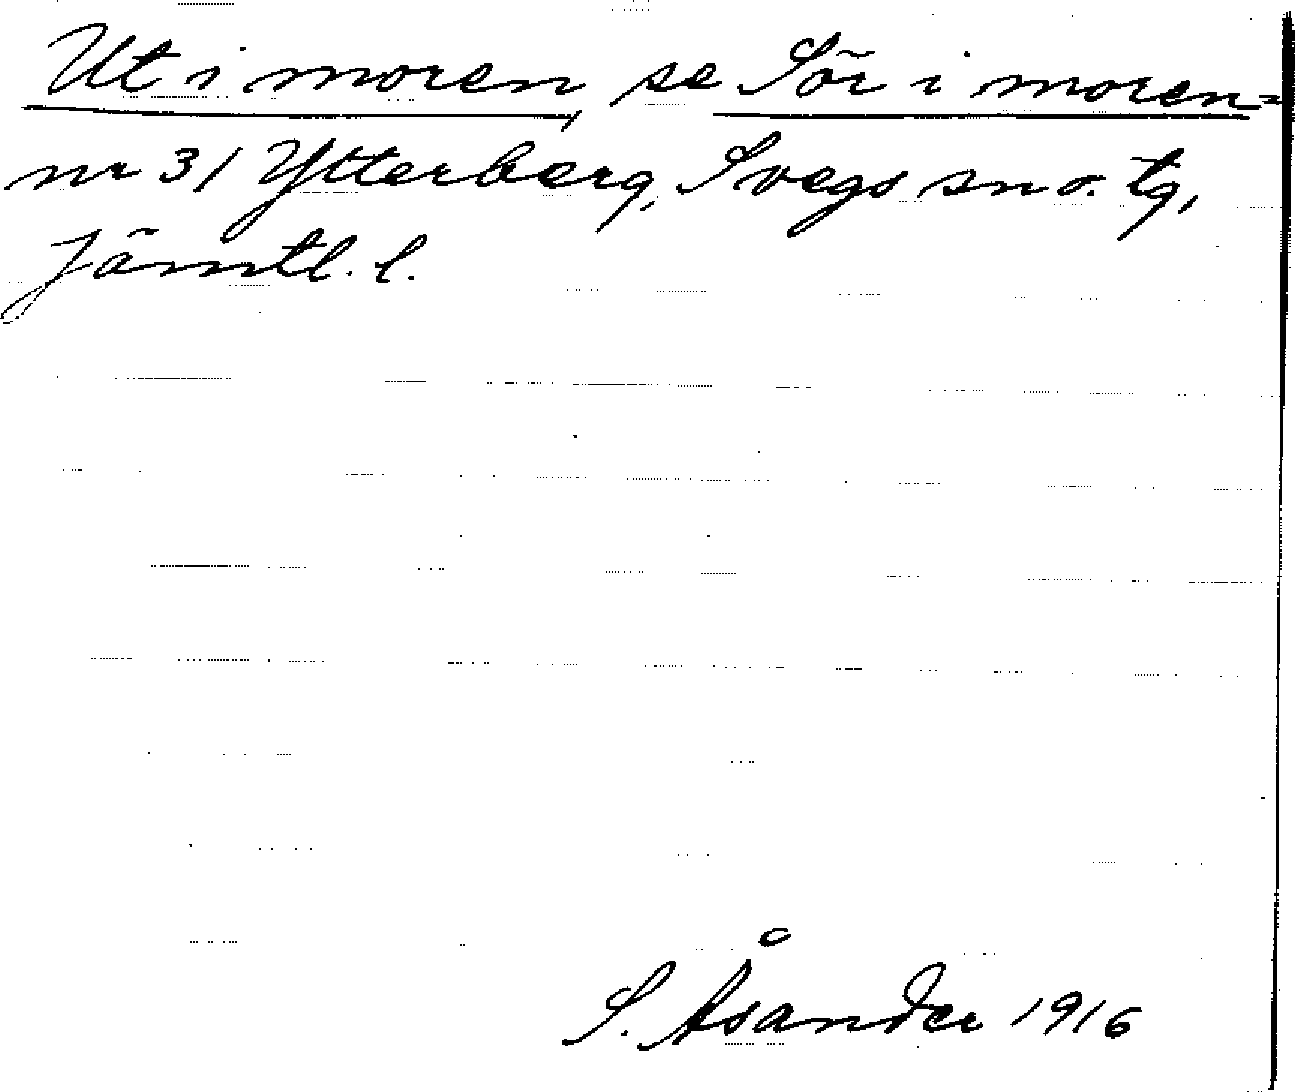 Ut i moren, se Sör i moren-
nr 31 Ytterberg, Svegs sn o. tg,
Jämtl. l.
S. Åsander 1916